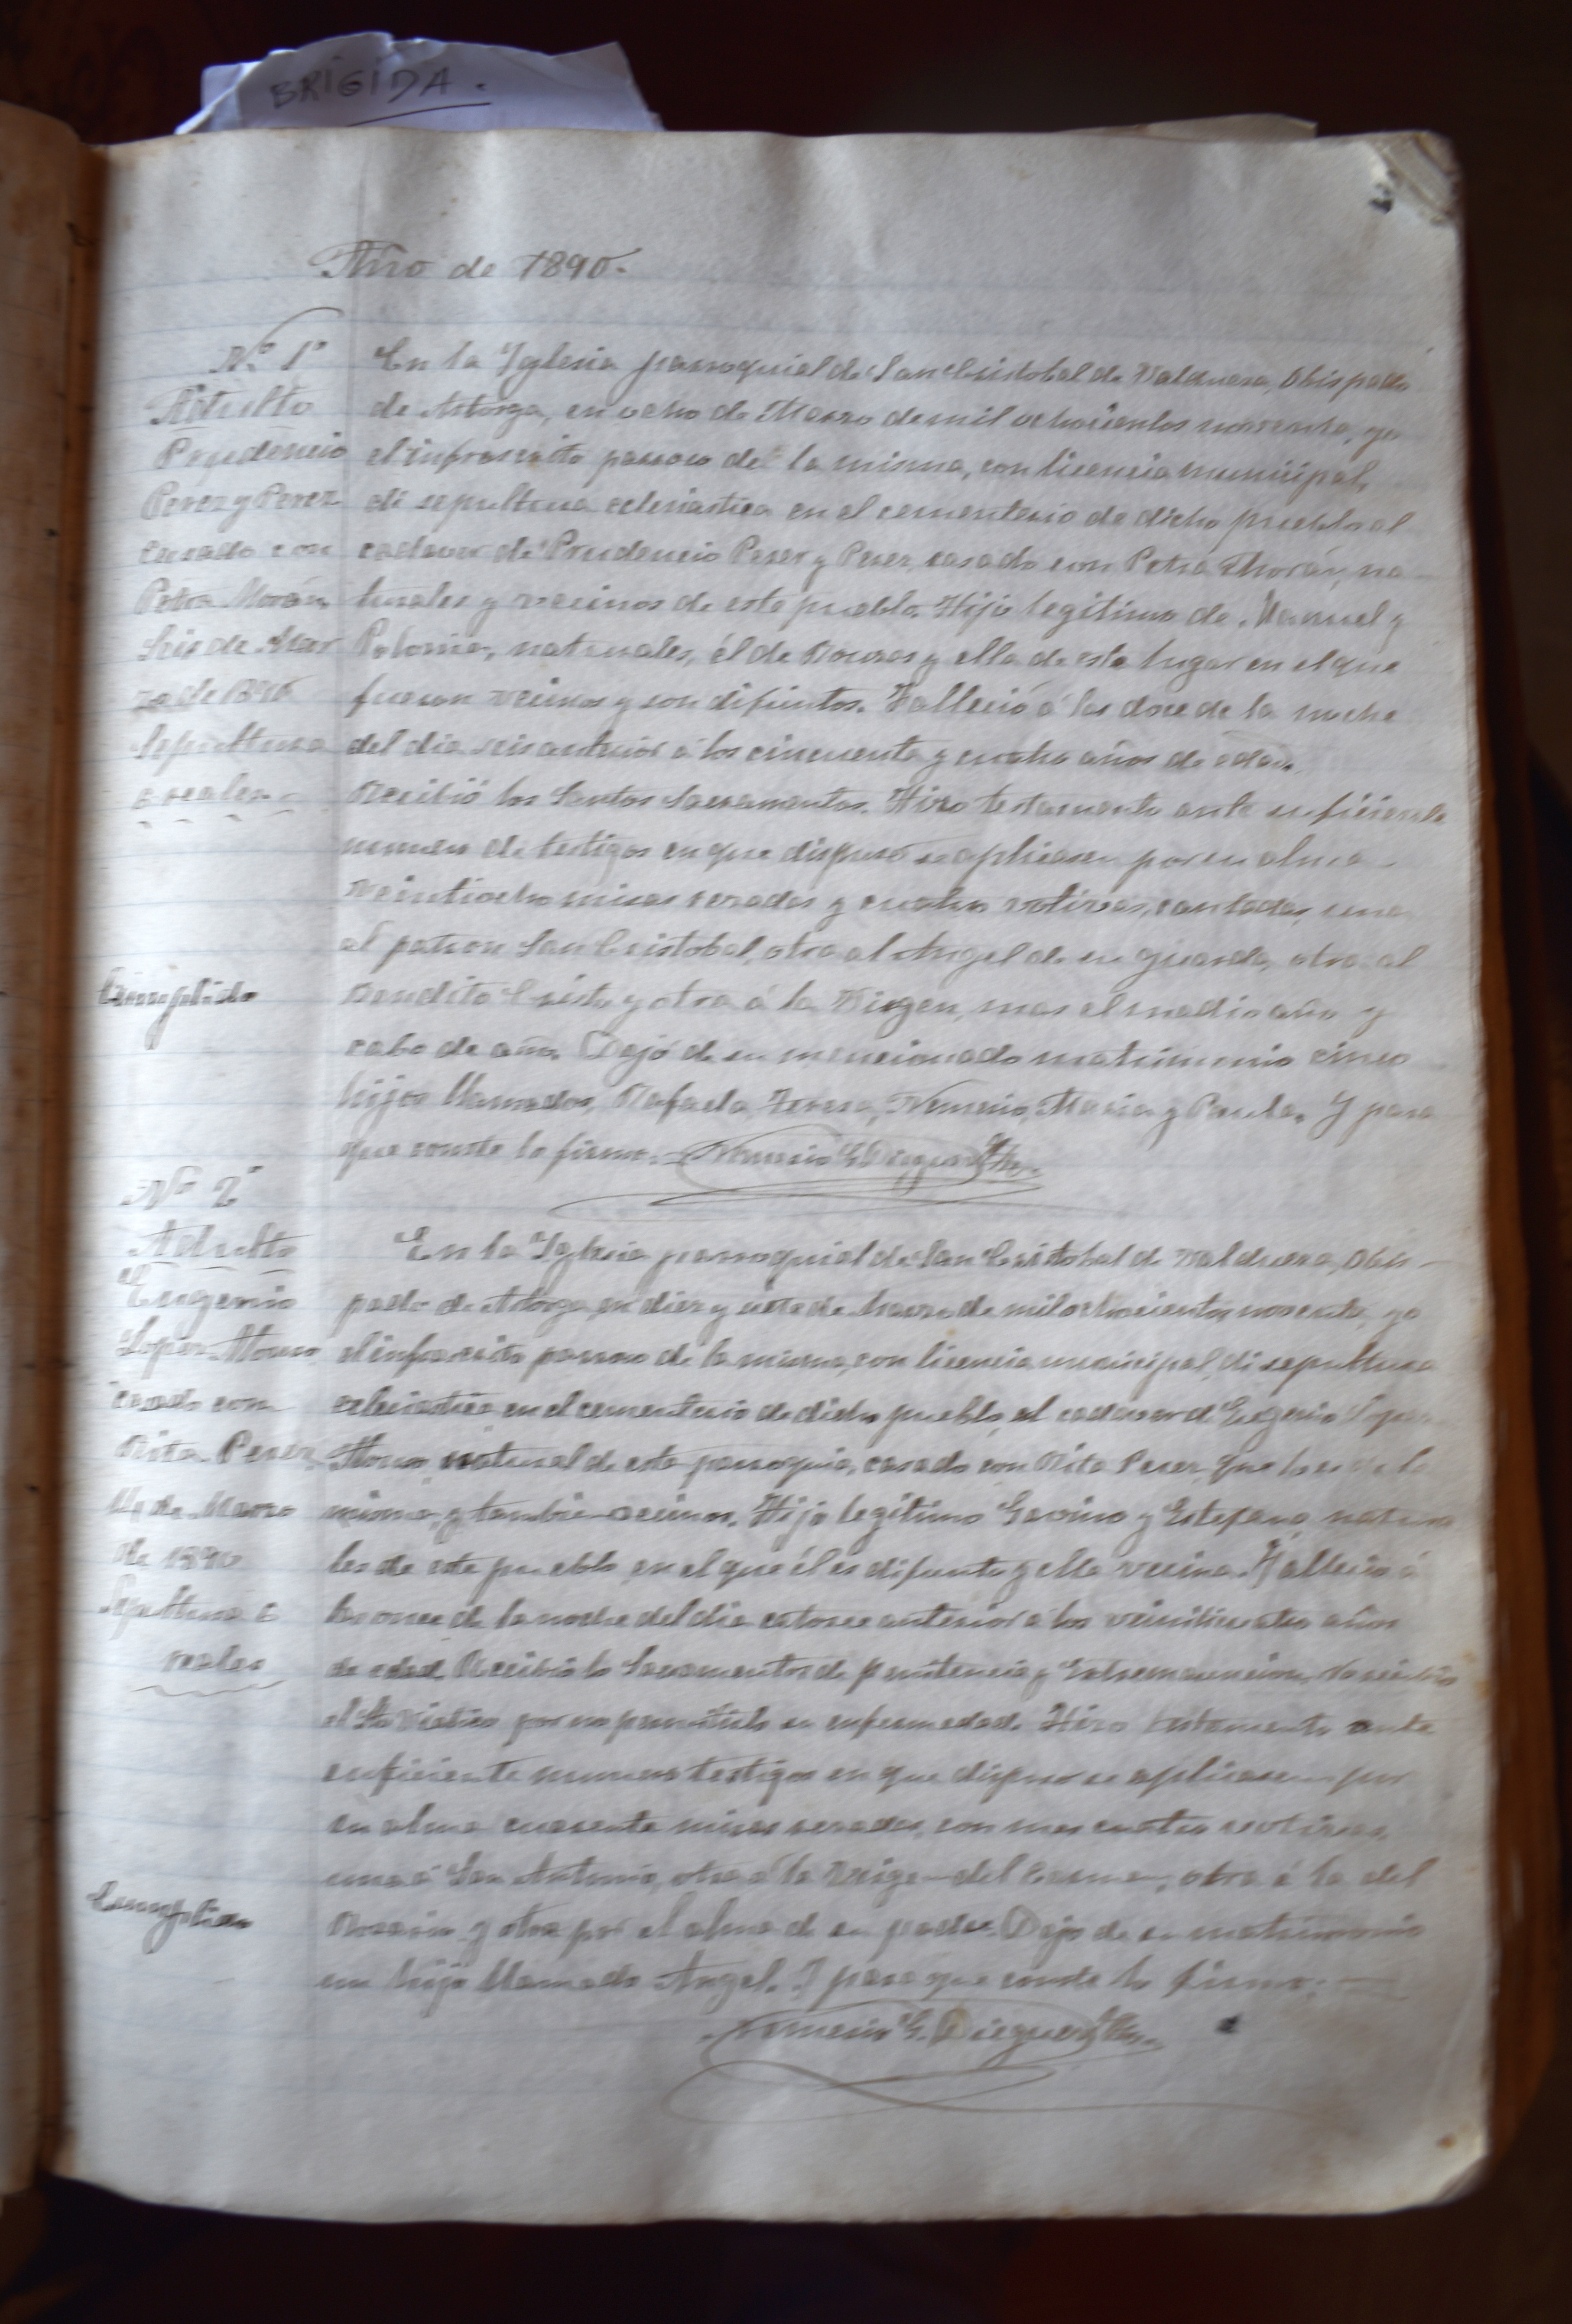 BRIGIDA.
Año de 1890.
Nº 1º
Adulto
Prudencio
Perez y Perez
casado con
Petra Morán
Seis de Mar
zo de 1890
Sepultura
reales.
En la Yglesia parroquial de San Cristobal de Valduesa, Obispado
de Astorga, en ocho de Marzo de mil ochocientos noventa, yo
el infrascrito parroco de la misma, con licencia municipal,
di sepultura eclesiastica en el cementerio de dicho pueblo al
cadaver de Prudencio Perez y Perez, casado con Petra Morán, na
turales y vecinos de este pueblo. Hijo legitimo de Manuel y
Polonia, naturales, él de Bouzas y ella de este lugar en el que
fueron vecinos y son difuntos. Falleció á las doce de la noche
del dia seis anterior á los cincuenta y cuatro años de edad.
Recibió los Santos Sacramentos. Hizo testamento ante suficiente
numero de testigos en que dispuso se aplicasen por su alma
veintiocho misas rezadas y cuatro votivas, cantadas, una
al patron San Cristobal, otra al Angel de su guarda, otra al
Bendito Cristo y otra á la Virgen, mas el medio año y
cabo de año. Dejó de su mencionado matrimonio cinco
hijos llamados, Rafaela, Teresa, Nemesio, Maria y Paula. Y para
que conste lo firmo. Nemesio G. Dieguez
Cumplido
Nº 2º
Adulto
Eugenio
Lopez Alonso
casado con
Rita Perez
14 de Marzo
de 1890
Sepultura 6
reales
En la Yglesia parroquial de San Cristobal de Valduesa, Obis-
pado de Astorga, en diez y siete de marzo de mil ochocientos noventa, yo
el infrascrito parroco de la misma, con licencia municipal, di sepultura
eclesiastica en el cementerio de dicho pueblo, al cadaver d Eugenio Lopez
Alonso, natural de esta parroquia, casado con Rita Perez, que lo es de la
misma, y tambien vecinos. Hijo legitimo Gavino y Estefana, natura
les de este pueblo en el que él es difunto y ella vecina. Falleció á
las once de la noche del dia catorce anterior á los veinticuatro años
de edad. Recibió lo Sacramentos de penitencia y Extremauncion, no recibió
el Sto Viatico por no permitirlo su enfermedad. Hizo testamento ante
suficiente numero testigos en que dispuso se aplicasen por
su alma cuarenta misas rezadas, con mas cuatro votivas,
una á San Antonio, otra á la Virgen del Carmen, otra á la del
Rosario y otra por el alma d su padre. Dejo de su matrimonio
un hijo llamado Angel. Y para que conste lo firmo;
Nemesio G. Dieguez
Cumplido